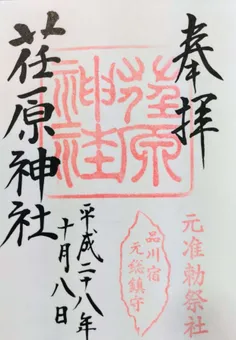 奉拝
元准勅祭社
荏原神社
品川宿
元総鎮守
平成二十八年
十月八日
荏原神社